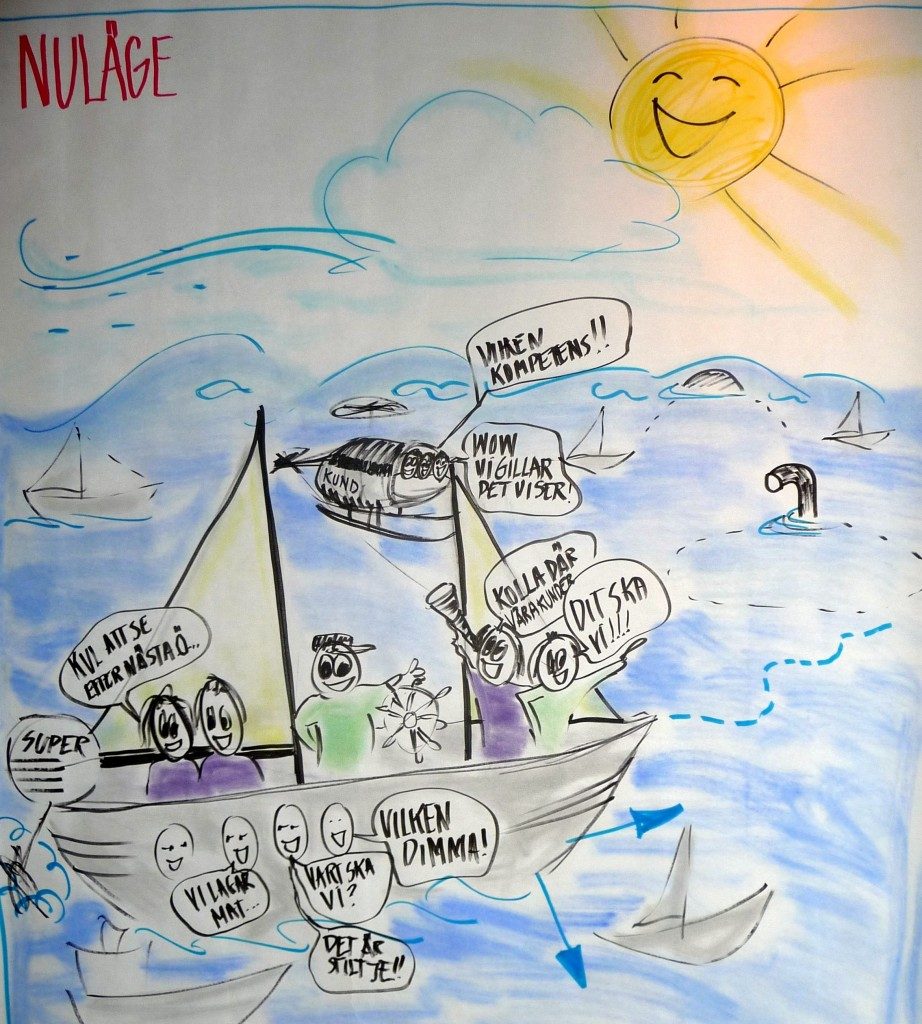 NULÄGE
VILKEN
KOMPETENS!!
WOW
VI GILLAR
DET VI SER!
KUND
KOLLA DÄR
VÅRA KUNDER
DIT SKA
VI!!!
KUL ATT SE
EFTER NÄSTA Ö...
SUPER
VILKEN
DIMMA!
VI LAGAR
MAT...
VART SKA
VI?
DET ÄR
STILTJE!!